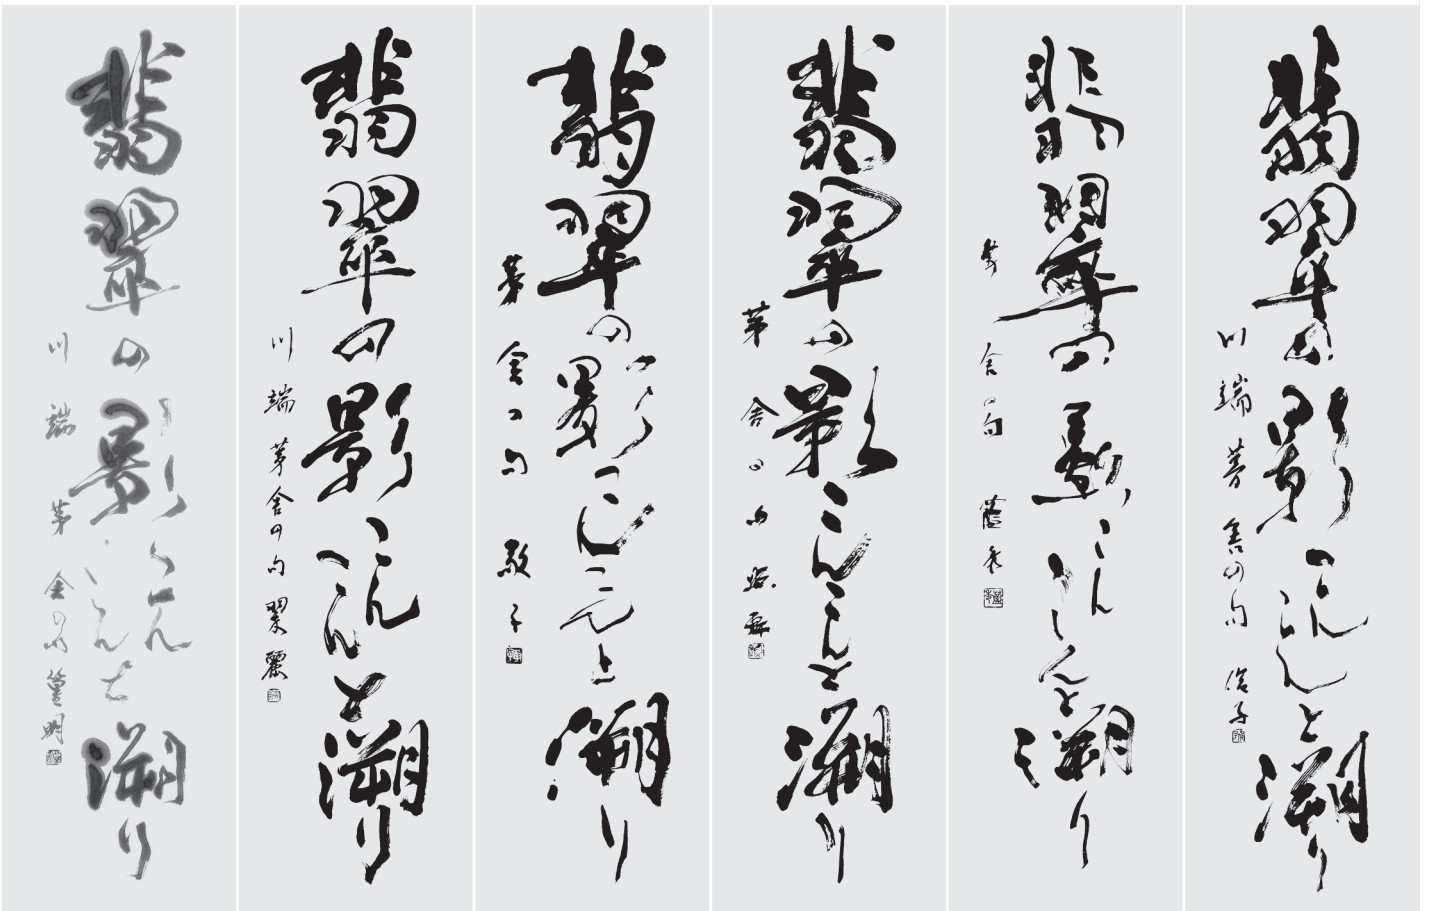 翡翠の影こんこんと溯り
川端茅舎の句
翡翠の影こんこんと溯り
茅舎の句
翡翠の影こんこんと溯り
茅舎の句
翡翠の影こんこんと溯り
茅舎の句 敬子
翡翠の影こんこんと溯り
川端茅舎の句 翠麗
翡翠の影こんこんと溯り
川端茅舎の句 篁明